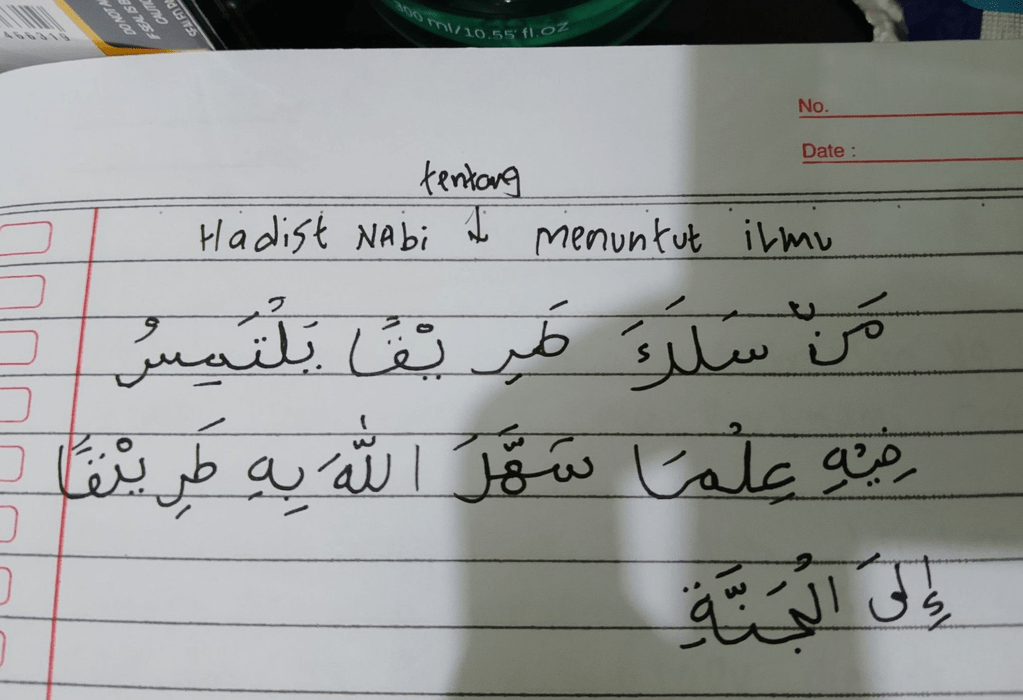 300 ml/10.55 fl.oz
466319
No.
Date :
tentang
Hadist NAbi ↓ menuntut ilmu
مَنْ سَلَكَ طَرِيْقًا يَلْتَمِسُ
فِيْهِ عِلْمًا سَهَّلَ اللّٰهُ بِهِ طَرِيْقًا
إِلَى الْجَنَّةِ